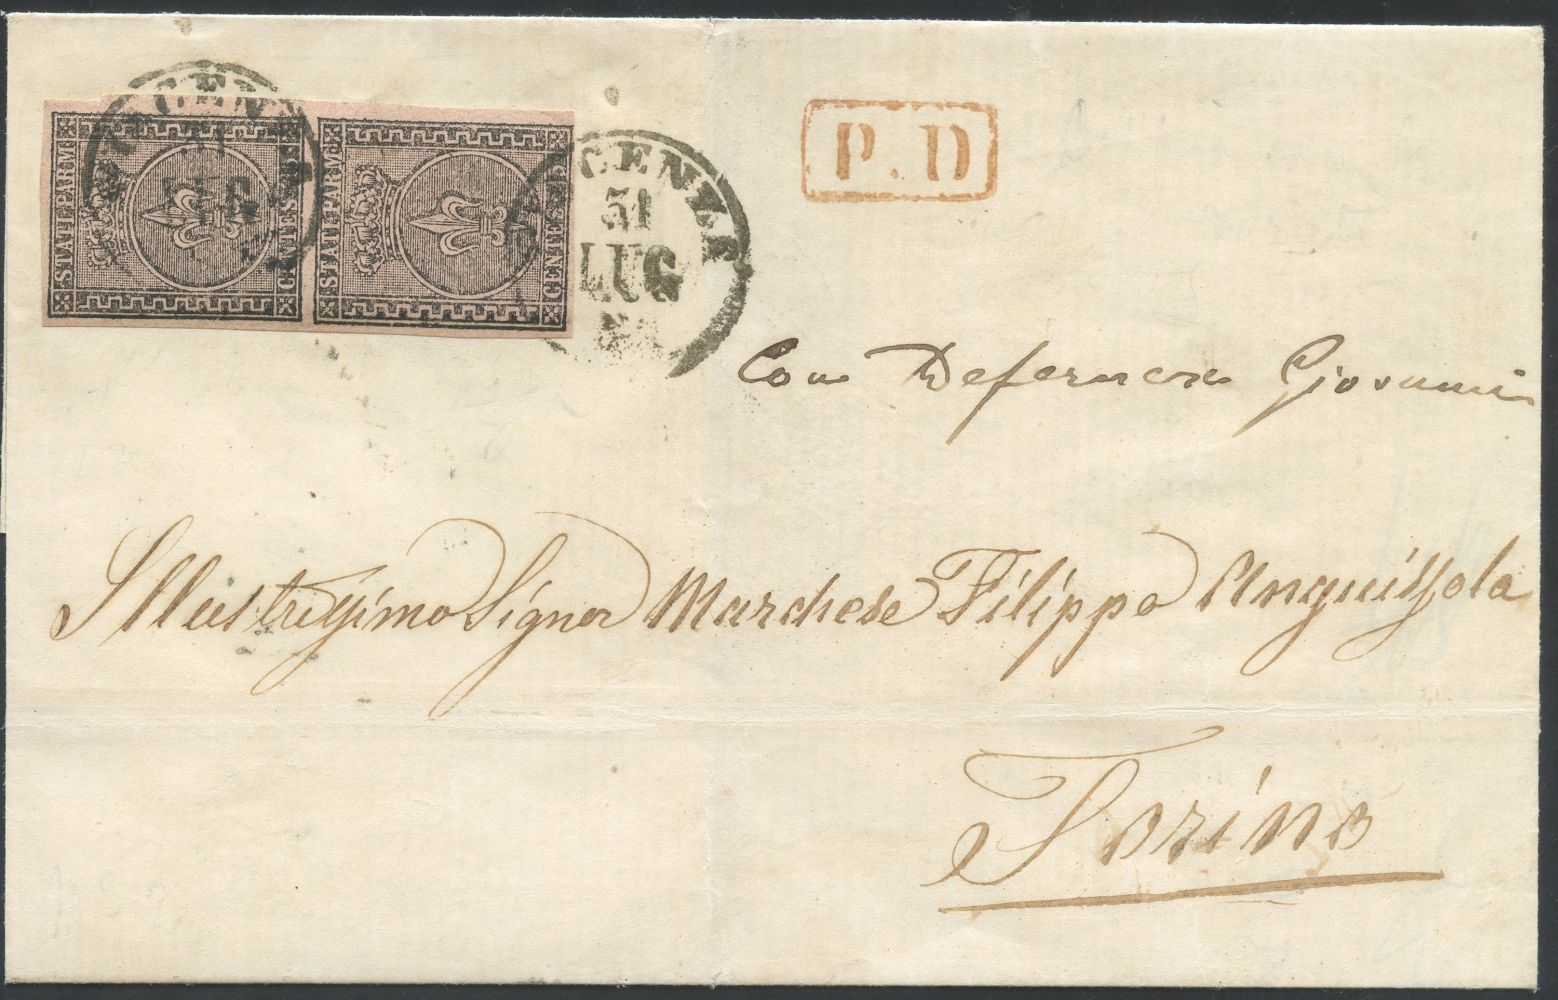 PIACENZA
STATI PARM.
CENTES. 15
STATI PARM.
CENTES. 15
PIACENZA
31
LUG
P. D
Con Deferenza Giovanni
Illustrissimo Signor Marchese Filippo Anguissola
Torino